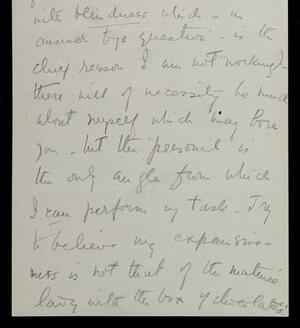 with blindness which – in
answer to yr question – is the
chief reason I am not working) –
there will of necessity be much
about myself which may bore
you – but the personal is
the only angle from which
I can perform my task. Try
to believe my expansive-
ness is not that of the matinée
lady with the box of chocolates!